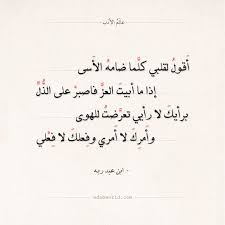 عالم الأدب
أقول لقلبي كلَّما ضامهُ الأسى
إذا ما أبيتَ العزَّ فاصبرْ على الذُّلِّ
برأيكَ لا رأيي تعرَّضتُ للهوى
وأمرِكَ لا أمري وفعلكَ لا فعْلي
- ابن عبد ربه
adabworld.com